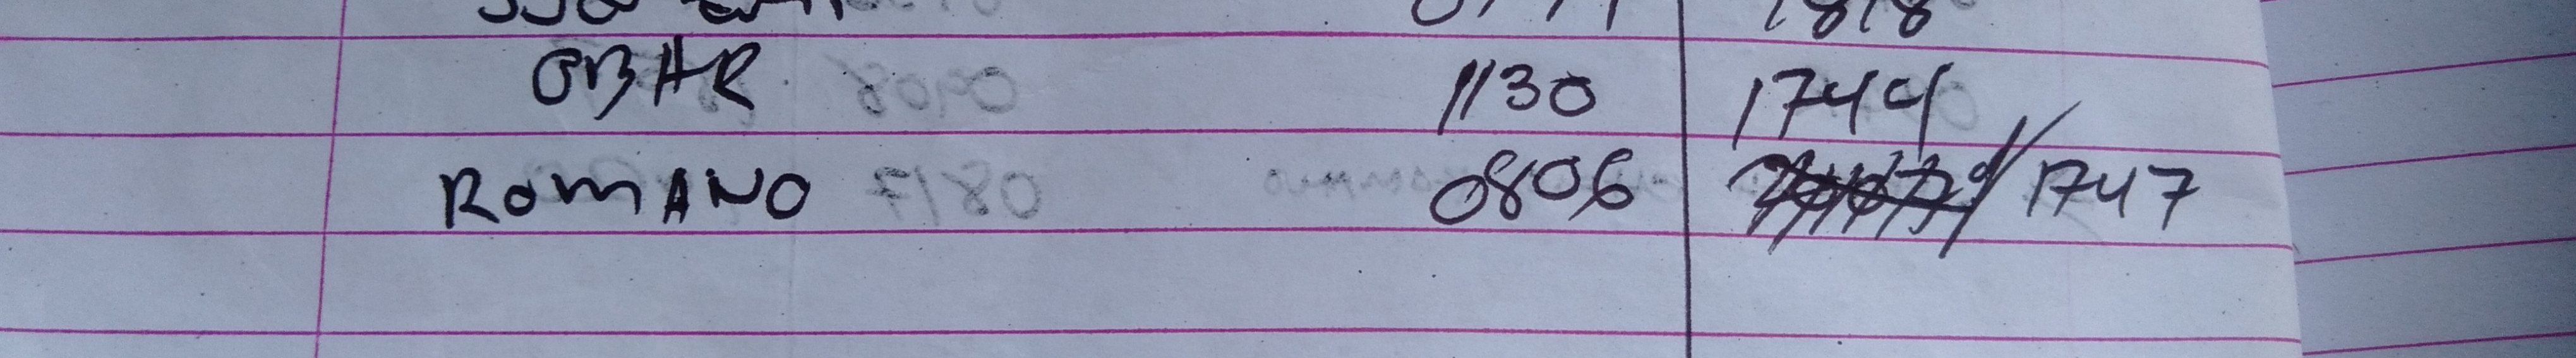 1818
OBHR 1130 1744
ROMANO 0806 1747